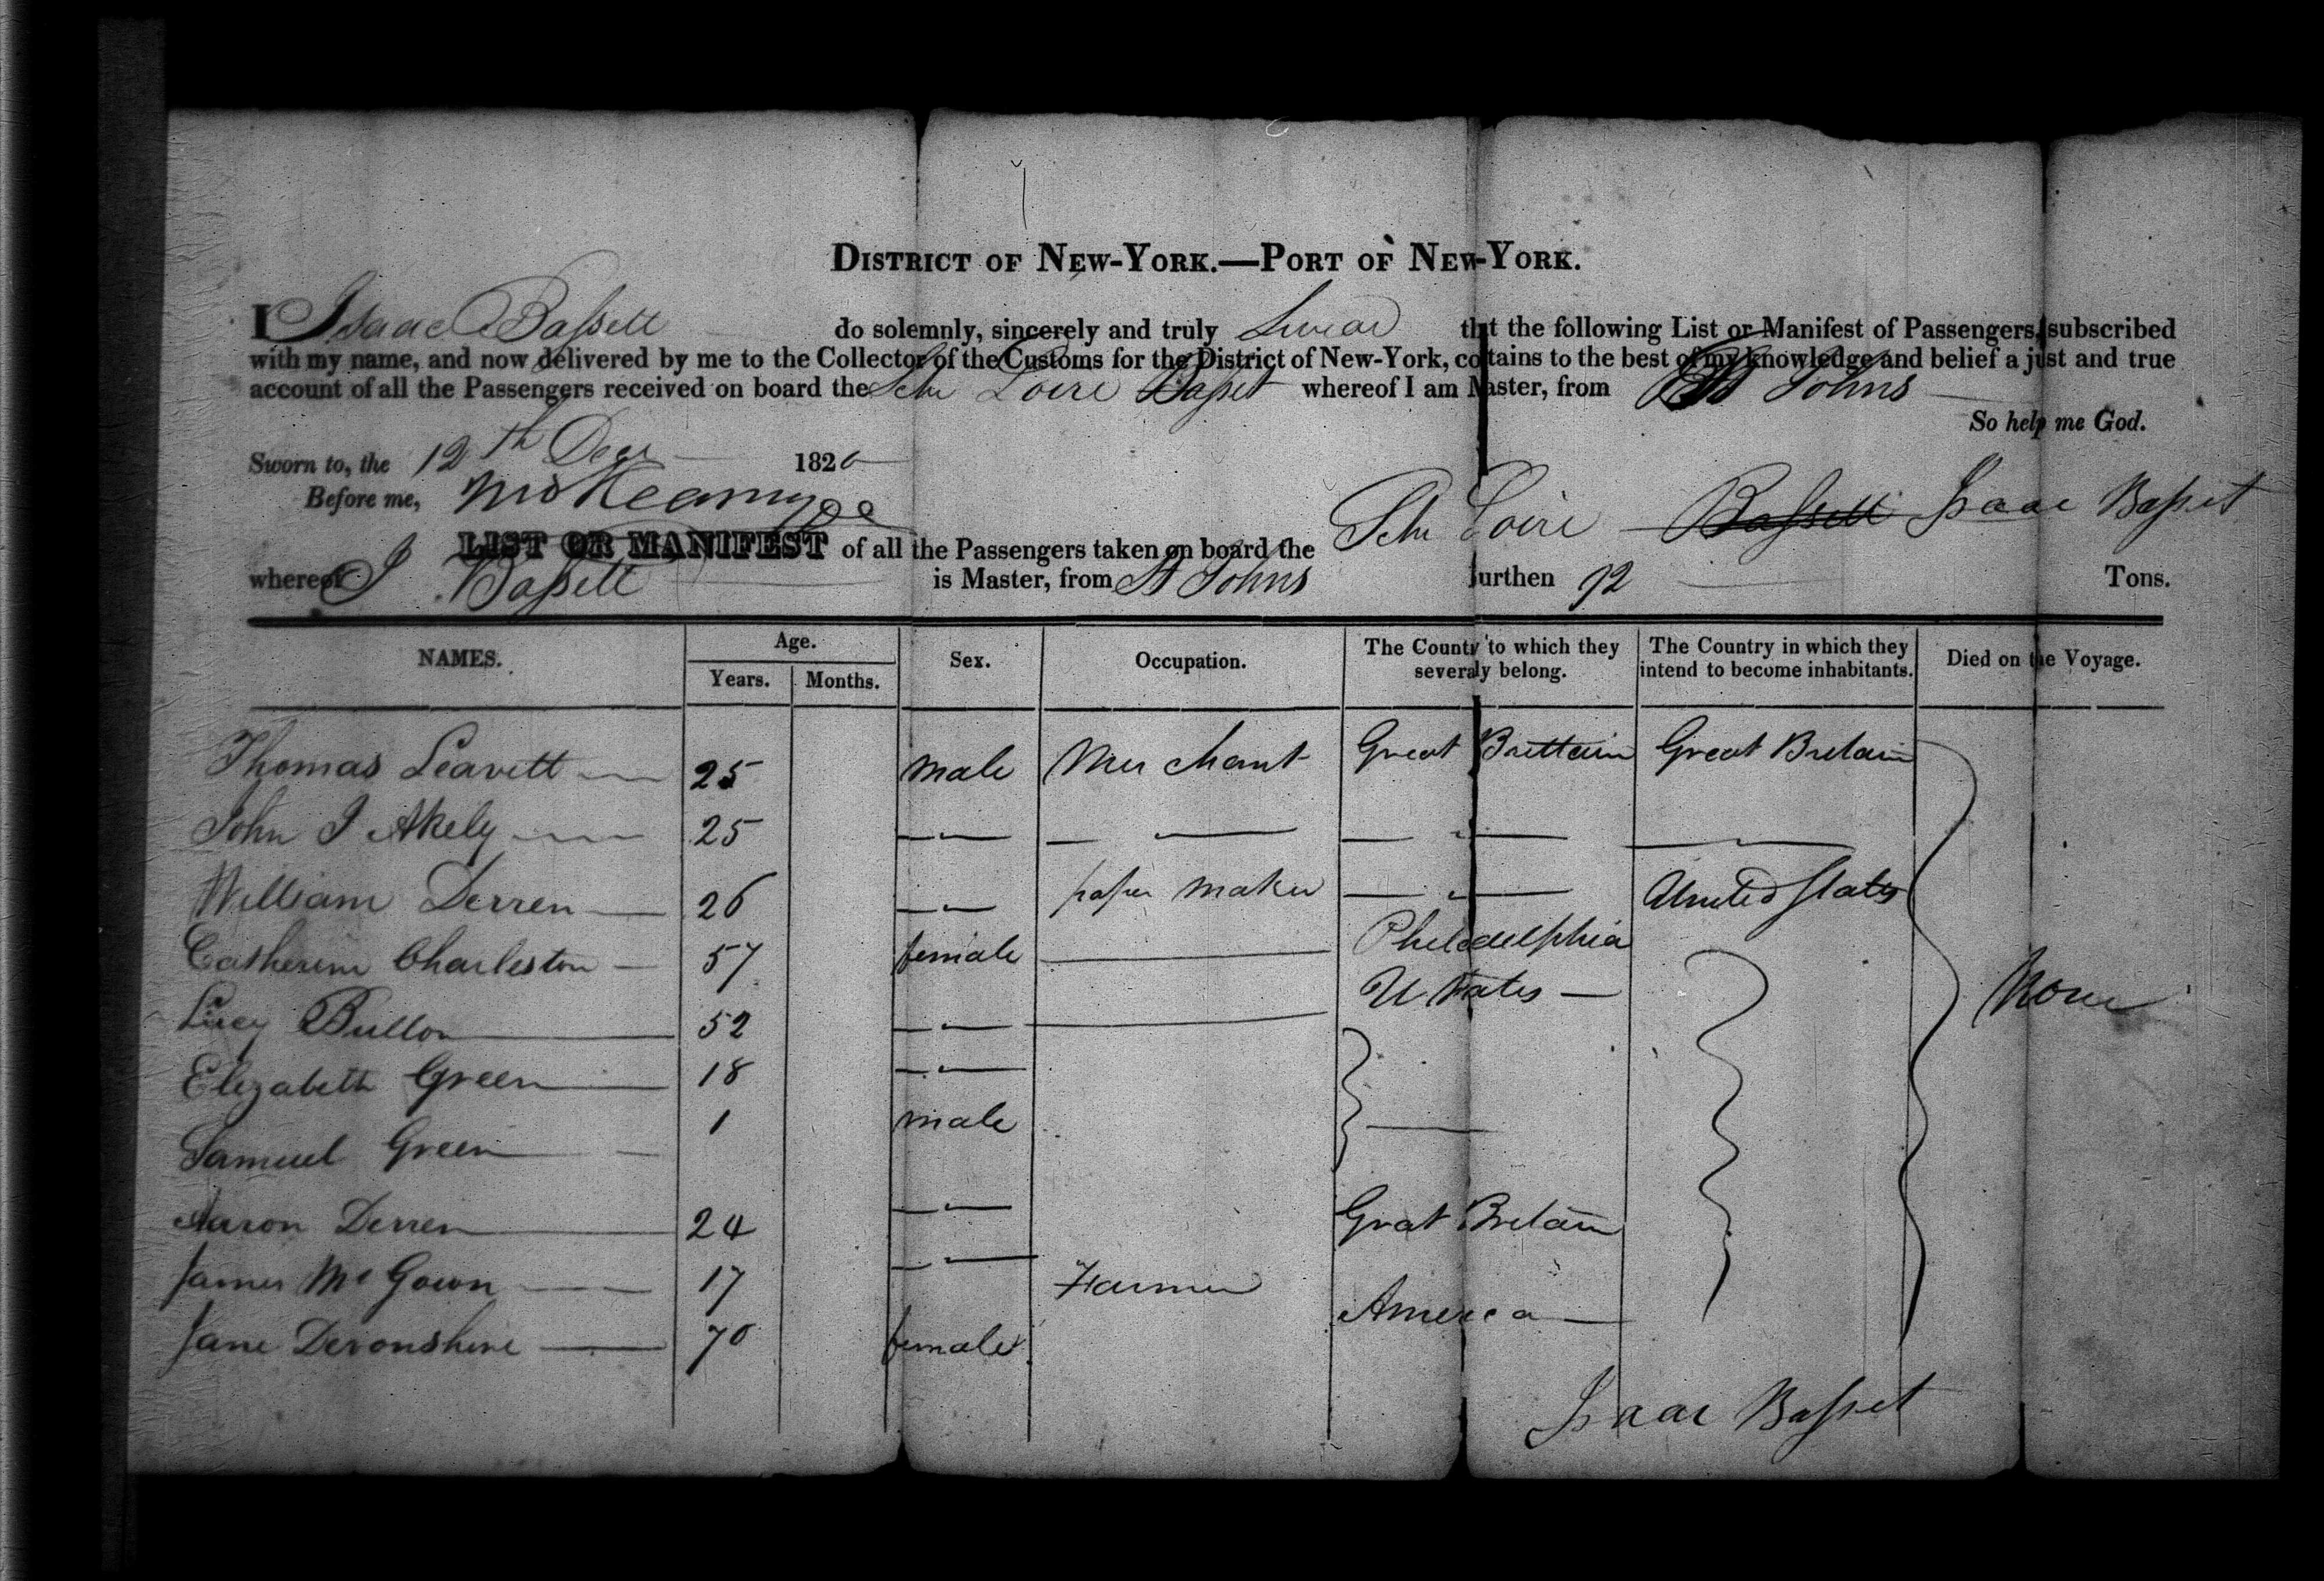 DISTRICT OF NEW-YORK.—PORT OF NEW-YORK.
I Isaac Bassett do solemnly, sincerely and truly Swear that the following List or Manifest of Passengers, subscribed
with my name, and now delivered by me to the Collector of the Customs for the District of New-York, contains to the best of my knowledge and belief a just and true
account of all the Passengers received on board the Schr Loire Basset whereof I am Master, from St Johns
So help me God.
Sworn to, the 12th Decr 1820
Before me,
LIST OR MANIFEST of all the Passengers taken on board the Schr Loire Bassett Isaac Basset
whereof I Bassett is Master, from St Johns burthen 92 Tons.
NAMES. Age. Years. Months. Sex. Occupation. The County to which they severaly belong. The Country in which they intend to become inhabitants. Died on the Voyage.
Thomas Leavett 25 male Merchant Great Brittain Great Bretain
John I Akely 25
William Derren 26 paper maker United States
Catherine Charleston 57 female Philedelphia
U States
Lucy Bullon 52
None
Elizabeth Green 18
Samuel Green 1 male
Aaron Derren 24 Great Bretain
James McGown 17 Farmer
America
Jane Devonshire 70 female
Isaac Basset